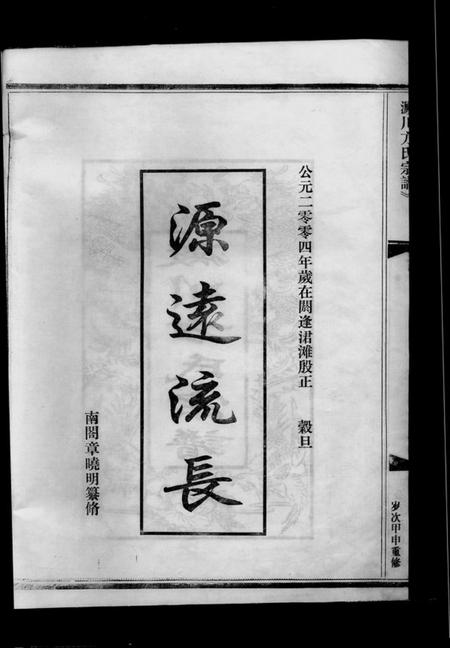 川方氏宗譜》
歲次甲申重修
公元二零零四年歲在閼逢涒滩殷正 穀旦
源遠流長
南閣章曉明纂脩